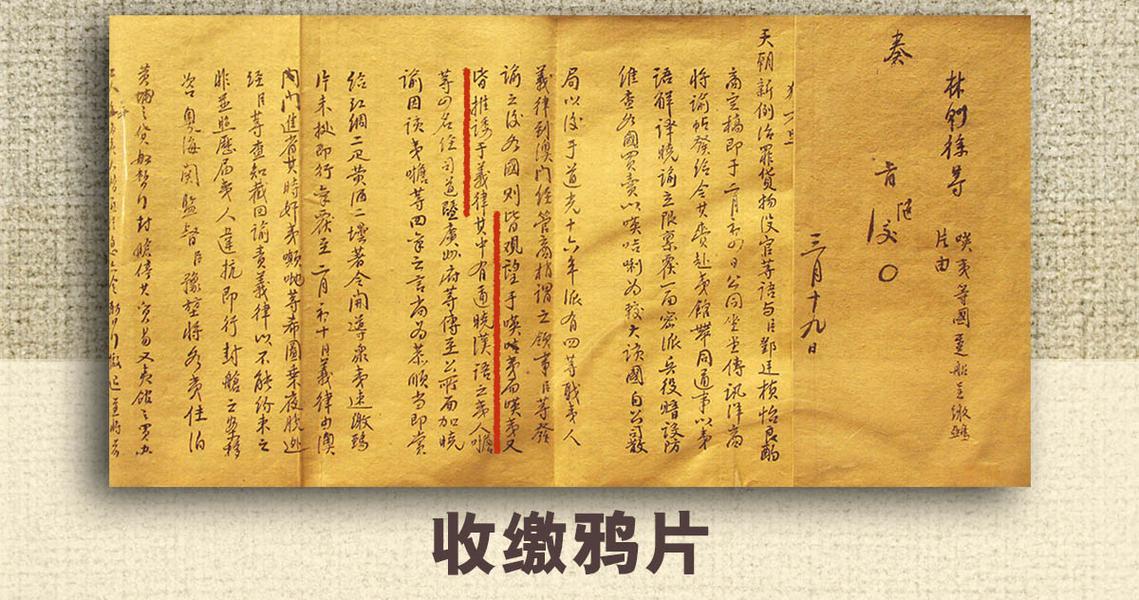 奏
林則徐等
片由
三月十九日
天朝新例治罪貨物沒官等語與臣鄧廷楨怡良酌
商定稿即于二月初四日公同坐堂傳訊洋商
將諭帖發給令其賫赴夷館帶同通事以夷
語解譯曉諭立限稟覆一面密派兵役暗設防
維查各國買賣以𠸄咭唎為較大該國自公司散
局以後于道光十六年派有四等職夷人
義律到澳門經管商梢謂之領事臣等發
諭之後各國則皆觀望于𠸄咭夷而𠸄夷又
皆推諉于義律其中有通曉漢語之夷人
等四名經司道暨廣州府等傳至公所面加曉
諭因該夷等回稟之言尚為恭順當即賞
給紅綢二疋黃酒二壜著令開導衆夷速繳鴉
片未批即行稟覆至二月初十日義律由澳
門進省其時奸夷顛地等希圖乘夜脫逃
經臣等查知截回諭責義律以不能約束之
非並照歷屆夷人違抗即行封艙之案移
咨粵海關監督臣豫堃將各夷住泊
黃埔之貨船暫行封艙停其貿易又夷館之買辦
收缴鸦片